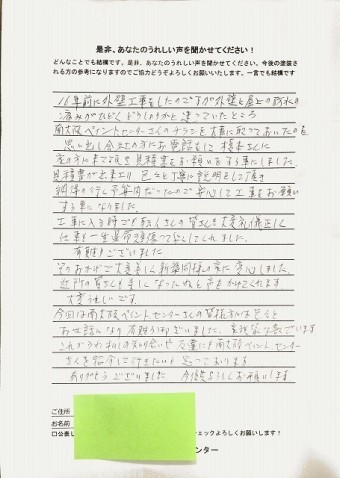 是非、あなたのうれしい声を聞かせてください!
どんなことでも結構です。是非、あなたのうれしい声をお聞かせください。今後の塗装
される方の参考になりますのでご協力どうぞよろしくお願いいたします。一言でも結構です
16年前に外壁工事をしたのですが外壁と屋上の防水の
傷みがひどくどうしようかと迷っていたところ
南大阪ペイントセンターさんのチラシを大事に取っておいたのを
思い出し会社の方にお電話をして橋本さんに
家の方に来て見て見積書をお願いする事にしました。
見積書が出来上り色々と丁寧に説明をして頂き
納得の行く予算内だったので安心して工事をお願い
する事になりました。
工事に入る時でも職人さんの皆さんも大変礼儀正しく
仕事も一生懸命頑張って下してくれました。
有難うございました
そのおかげで大変美しく新築同様の家に変心しました。
近所の皆さんも美しくなったねと声をかけてくれます
大変うれしいです。
今回は南大阪ペイントセンターさんの皆様方には色々と
お世話になり有難うございました。
これからもわたしの知り合いや友達にも南大阪ペイントセンター
さんを紹介して行きたいと思っております
ありがとうございました 今後もよろしくお願いします
ご住所
お名前
口公表し
ェックよろしくお願いします!
ンター